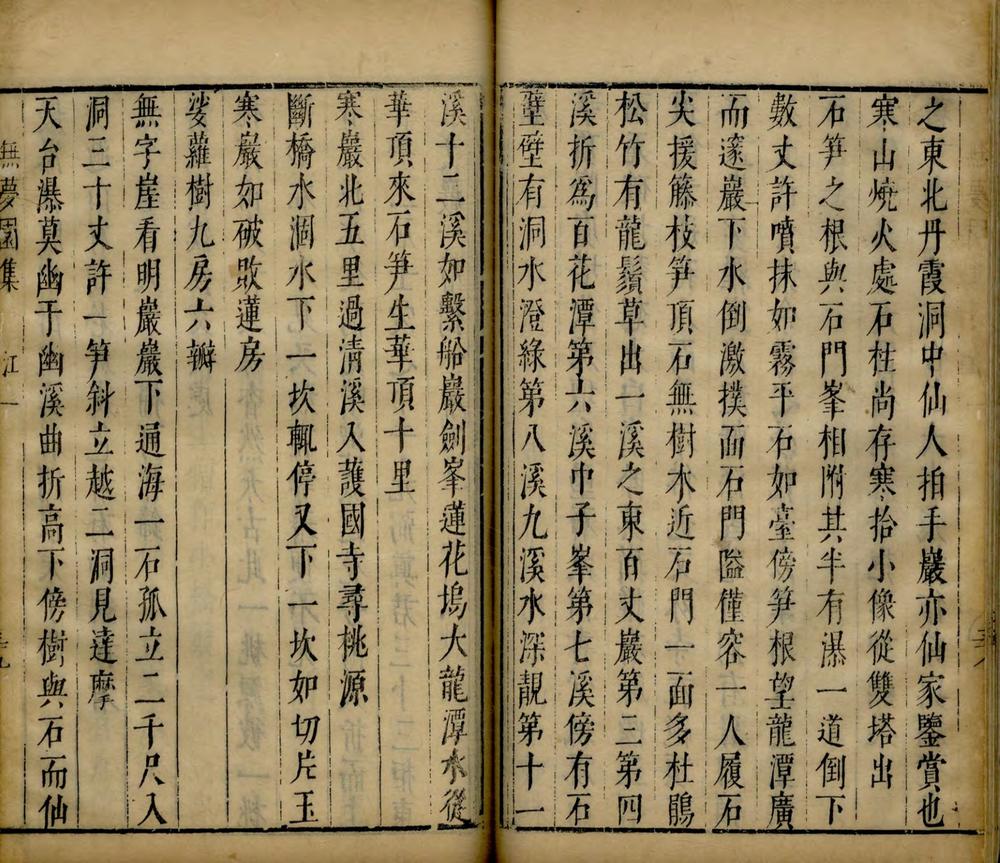 之東北丹霞洞中仙人拍手巖亦仙家鑒賞也
寒山燒火處石柱尚存寒拾小像從雙塔出
石笋之根與石門峯相附其半有瀑一道倒下
數丈許噴抹如霧平石如臺傍笋根望龍潭廣
而邃巖下水倒激撲面石門隘僅容一人履石
尖援籐枝笋頂石無樹木近石門一面多杜鵑
松竹有龍鬚草出一溪之東百丈巖第三第四
溪折爲百花潭第六溪巾子峯第七溪傍有石
璧壁有洞水澄綠第八溪九溪水深靚第十一
溪十二溪如繫船巖劍峯蓮花塢大龍潭水從
華頂來石笋生華頂十里
寒巖北五里過清溪入護國寺尋桃源
斷橋水涸水下一坎輒停又下一坎如切片玉
寒巖如破敗蓮房
娑蘿樹九房六瓣
無字崖看明巖巖下通海一石孤立二千尺入
洞三十丈許一笋斜立越五洞見達摩
天台瀑莫幽于幽溪曲折高下傍樹與石而仙
無夢園集 江一